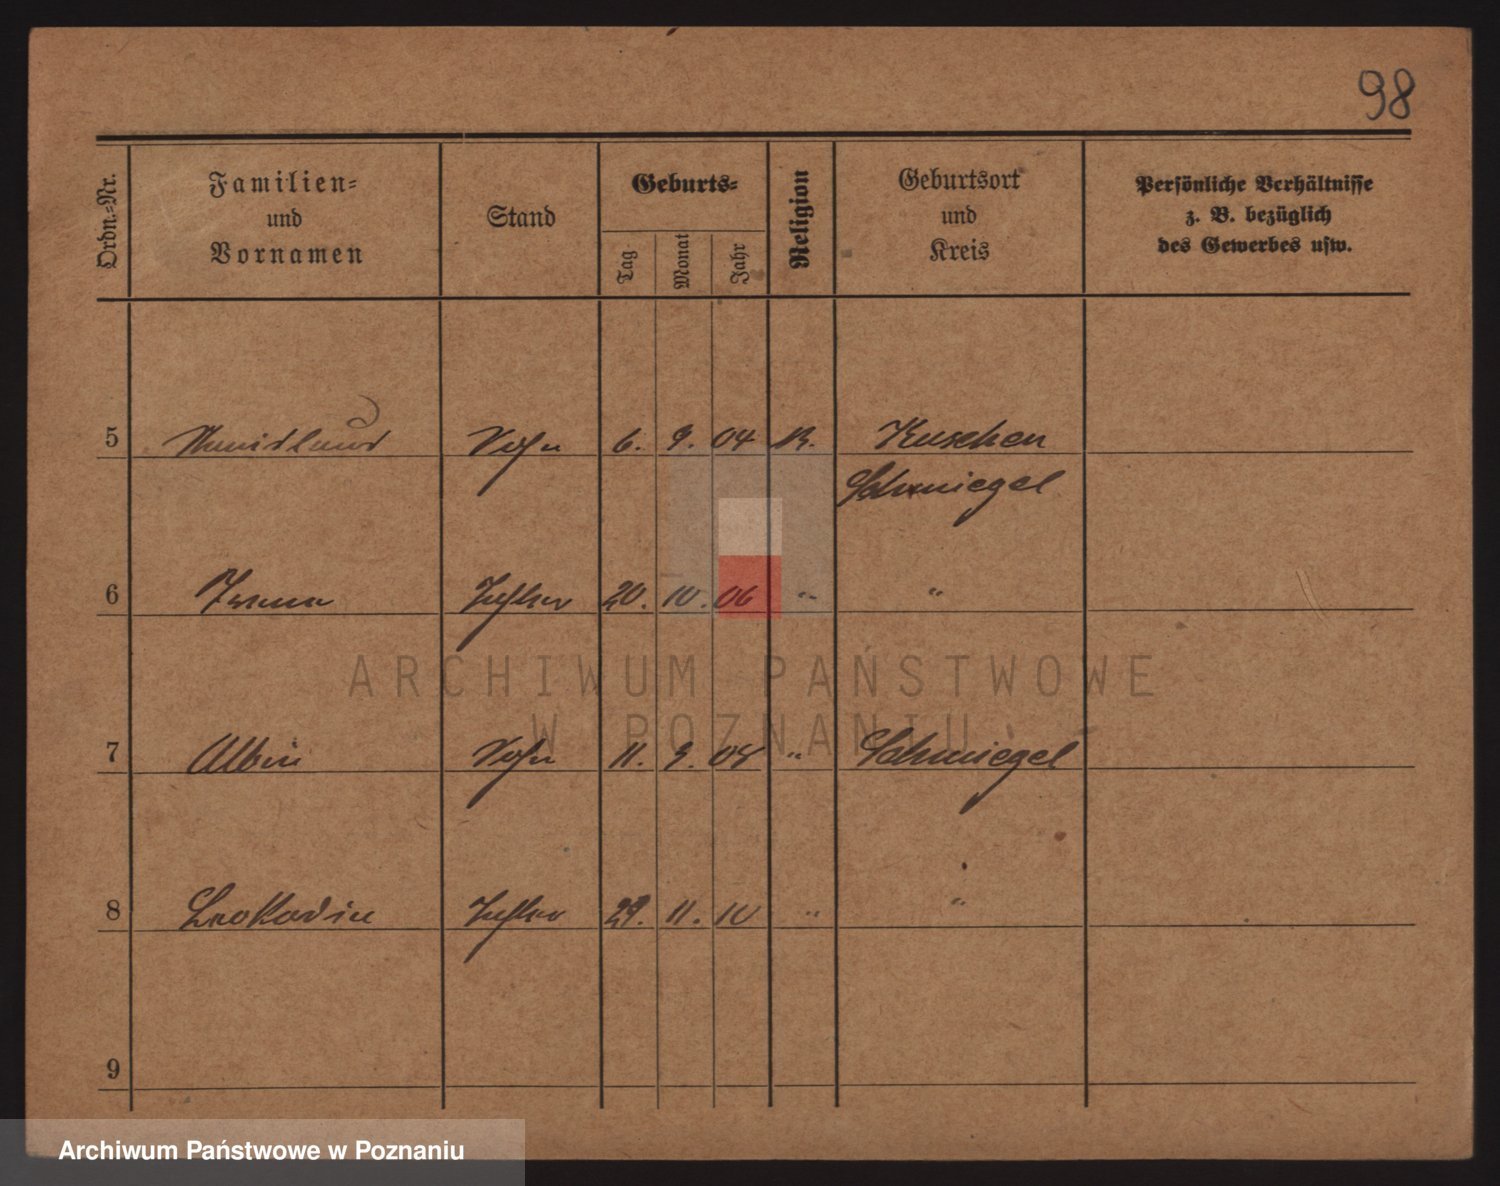 98
Ordn.-Nr.
Familien-
und
Vornamen
Stand
Geburts-
Tag
Monat
Jahr
Religion
Geburtsort
und
Kreis
Persönliche Verhältnisse
z. B. bezüglich
des Gewerbes usw.
5 Sohn 6. 9. 04 Kuschen
Schmiegel
6 Irena Tochter 20. 10. 06 " "
ARCHIWUM PAŃSTWOWE
W POZNANIU
7 Albin Sohn 11. 9. 08 " Schmiegel
8 Leokadia Tochter 29. 11. 10 " "
9
Archiwum Państwowe w Poznaniu